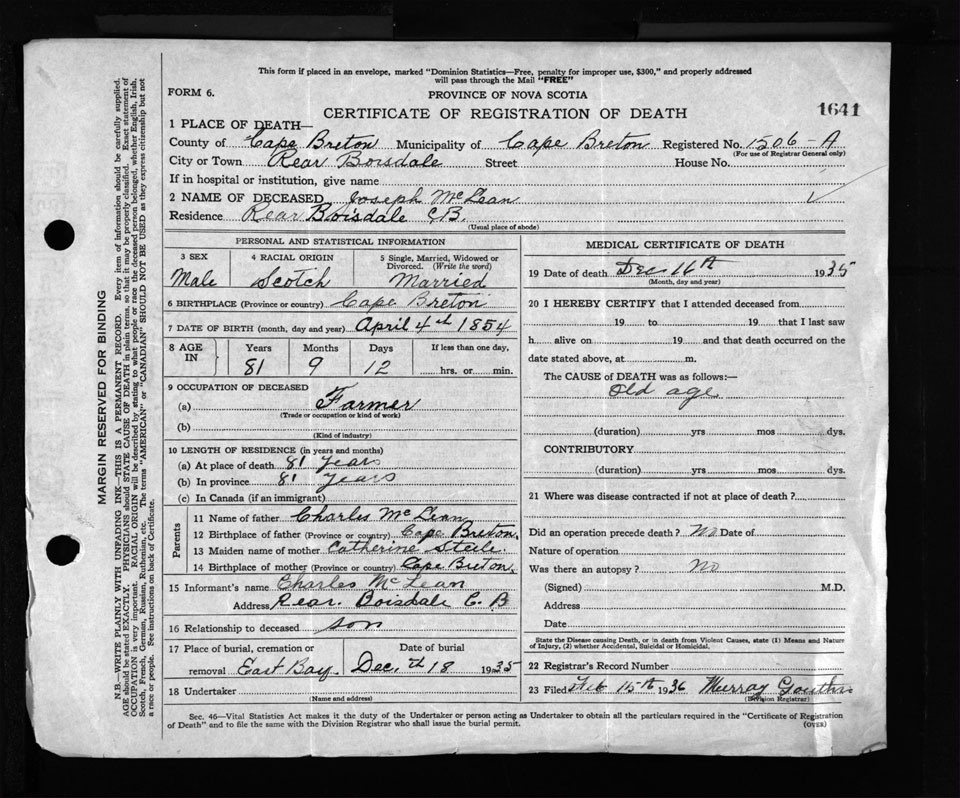 This form if placed in an envelope, marked "Dominion Statistics—Free, penalty for improper use, $300," and properly addressed
will pass through the Mail "FREE"
FORM 6.
PROVINCE OF NOVA SCOTIA
CERTIFICATE OF REGISTRATION OF DEATH
1641
1 PLACE OF DEATH—
County of Cape Breton Municipality of Cape Breton Registered No. 1506-A
(For use of Registrar General only)
City or Town Rear Boisdale Street House No.
If in hospital or institution, give name
2 NAME OF DECEASED Joseph McLean
Residence Rear Boisdale C.B.
(Usual place of abode)
PERSONAL AND STATISTICAL INFORMATION
3 SEX 4 RACIAL ORIGIN 5 Single, Married, Widowed or
Divorced. (Write the word)
Male Scotch Married
6 BIRTHPLACE (Province or country) Cape Breton
7 DATE OF BIRTH (month, day and year) April 4th 1854
8 AGE IN Years Months Days If less than one day,
81 9 12 hrs. or min.
9 OCCUPATION OF DECEASED
(a) Farmer
(Trade or occupation or kind of work)
(b)
(Kind of industry)
10 LENGTH OF RESIDENCE (in years and months)
(a) At place of death 81 years
(b) In province 81 years
(c) In Canada (if an immigrant)
Parents
11 Name of father Charles McLean
12 Birthplace of father (Province or country) Cape Breton
13 Maiden name of mother Catherine Steele
14 Birthplace of mother (Province or country) Cape Breton
15 Informant's name Charles McLean
Address Rear. Boisdale C. B
16 Relationship to deceased son
17 Place of burial, cremation or Date of burial
removal East Bay Dec. th 18 1935
18 Undertaker
(Name and address)
MEDICAL CERTIFICATE OF DEATH
19 Date of death Dec 16th 1935
(Month, day and year)
20 I HEREBY CERTIFY that I attended deceased from
19 to 19 that I last saw
h alive on 19 and that death occurred on the
date stated above, at m.
The CAUSE of DEATH was as follows:—
Old age
(duration) yrs mos dys.
CONTRIBUTORY
(duration) yrs mos dys.
21 Where was disease contracted if not at place of death?
Did an operation precede death? No Date of
Nature of operation
Was there an autopsy? No
(Signed) M.D.
Address
Date
State the Disease causing Death, or in death from Violent Causes, state (1) Means and Nature
of Injury, (2) whether Accidental, Suicidal or Homicidal.
22 Registrar's Record Number
23 Filed Feb 15th 1936 Murray
(Division Registrar)
Sec. 46—Vital Statistics Act makes it the duty of the Undertaker or person acting as Undertaker to obtain all the particulars required in the "Certificate of Registration
of Death" and to file the same with the Division Registrar who shall issue the burial permit.
(OVER)
MARGIN RESERVED FOR BINDING
N.B.—WRITE PLAINLY WITH UNFADING INK—THIS IS A PERMANENT RECORD. Every item of information should be carefully supplied.
AGE should be stated EXACTLY. PHYSICIANS should STATE CAUSE OF DEATH in plain terms, so that it may be properly classified. Exact statement of
OCCUPATION is very important. RACIAL ORIGIN will be described by stating to what people or race the deceased person belonged, whether English, Irish,
Scotch, French, German, Russian, Ruthenian, etc. The terms "AMERICAN" or "CANADIAN" SHOULD NOT BE USED as they express citizenship but not
a race or people. See instructions on back of Certificate.